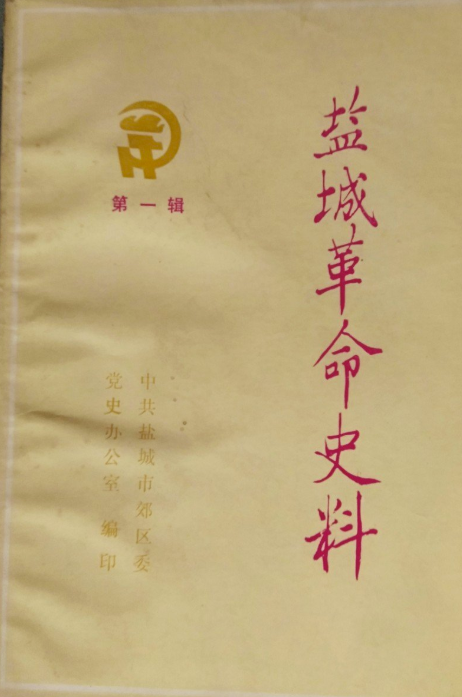 盐城革命史料
第一辑
中共盐城市郊区委
党史办公室 编印